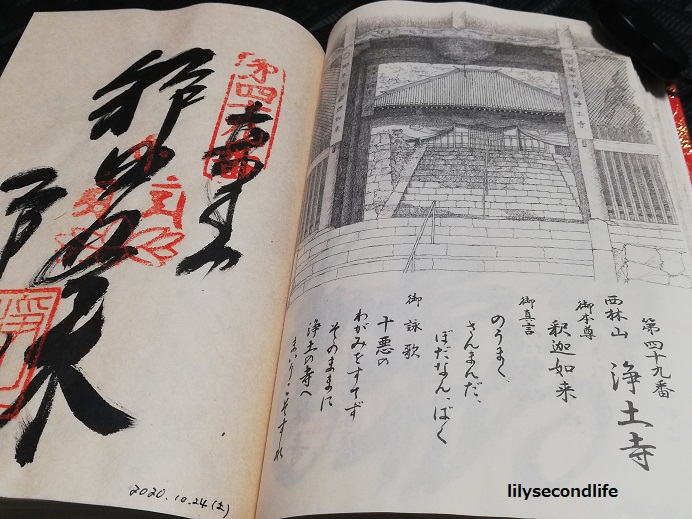 第四十九番
西林山 浄土寺
御本尊
釈迦如来
御真言
のうまく、
さんまんだ、
ぼだなん、ばく
御詠歌
十悪の
わがみをすてず
そのままに
浄土の寺へ
まいりこそすれ
第四十九番
奉
釈迦如来
2020.10.24(土)
lilysecondlife